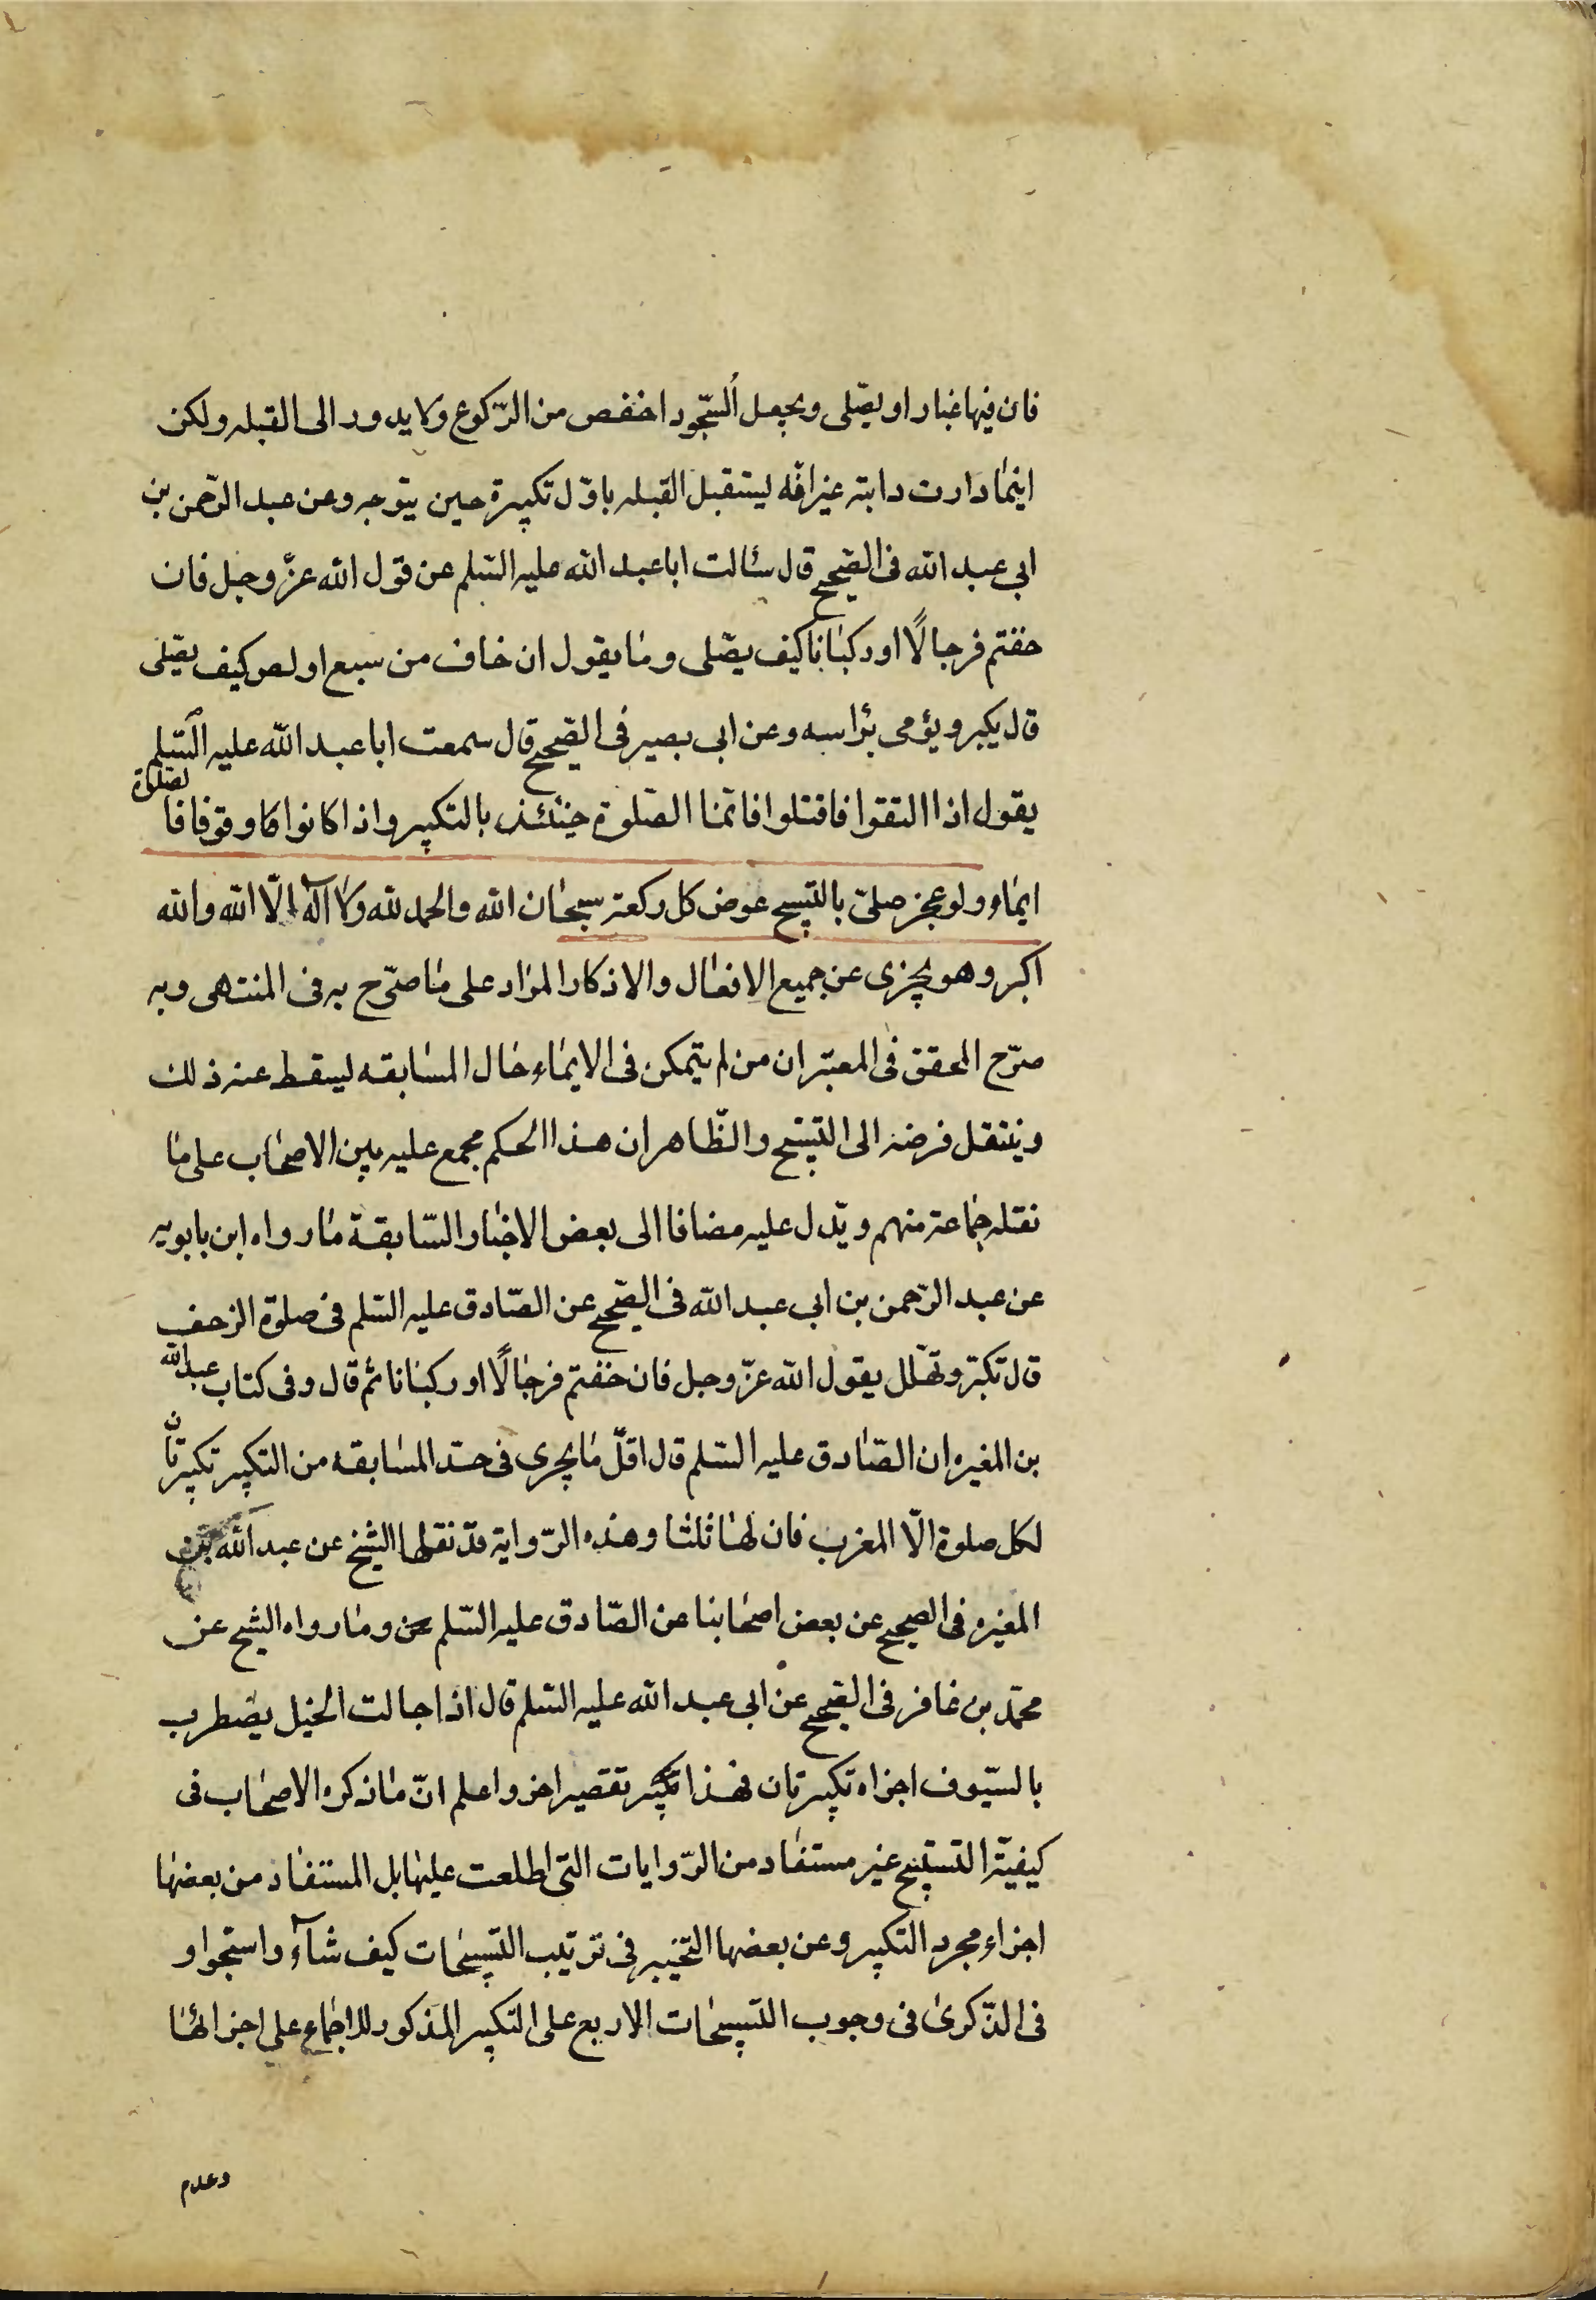 فان فيها غبار او يصّلى ويجعل السّجود اخفص من الرّكوع ولا يدور الى القبله ولكن
اينما دارت دابته غير انّه ليستقبل القبله باوّل تكبيرة حين يتوجه وعن عبد الرّحمن بن
ابي عبد الله فى الصّحيح قال سئالت ابا عبد الله عليه السّلم عن قول الله عزّ وجل فان
خفتم فرجالًا او ركبانا كيف يصّلى وما يقول ان خاف من سبع او لص كيف يصّلى
قال يكبر ويؤمى برٔاسه وعن ابى بصير فى الصّحيح قال سمعت ابا عبد الله عليه السّلم
يقول اذا التقوا فاقتلوا فانمّا الصّلوة حينئذ بالتكبير واذا كانوا وقوفا فا لصّلوة
ايماء ولو عجز صلىّ بالتّسبيح عوض كل ركعة سبحان الله والحمد لله ولا آله الّا الله والله
اكبر وهو يجزى عن جميع الافعال والاذكار المراد على ما صرّح به فى المنتهى وبه
صرّح المحقق فى المعتبر ان من لم يتمكن فى الايماء حال المسابقه ليسقط عنه ذلك
وينتقل فرضه الى التّسبيح والظّاهر ان هذا الحكم مجمع عليه بين الاصحاب على ما
نقله جماعة منهم ويدّل عليه مضافا الى بعض الاخبار السّابقة ما رواه ابن بابويه
عن عبد الرّحمن بن ابى عبد الله فى الصّحيح عن الصّادق عليه السّلم فى صلوة الزحف
قال تكبّر وتهّلل يقول الله عزّ وجل فان خفتم فرجالًا او ركبانا ثم قال وفى كتاب عبد الله
بن المغيره ان الصّادق عليه السّلم قال اقلّ ما يجرى فى حدّ المسابقه من التكبير تكبيرتان
لكل صلوة الّا المغرب فان لها ثلثا وهذه الرّواية قد نقلها الشّيخ عن عبد الله بن
المغيره فى الصحيح عن بعض اصحابنا عن الصّادق عليه السّلم وما رواه الشيخ عن
محمّد بن غافر فى الصّحيح عن ابى عبد الله عليه السّلم قال اذا جالت الخيل يضطرب
بالسّيوف اجزاه تكبيرتان فهذا تقصير اخر واعلم انّ ما ذكره الاصحاب فى
كيفيّة التسبيح غير مستفاد من الرّوايات التى اطلعت عليها بل المستفاد من بعضها
اجزاء مجرد التكبير وعن بعضها التخيير فى ترتيب التّسبيحات كيف شآء واستجواو
فى الذّكرى فى وجوب التّسبيحات الاربع على التكبير المذكور للاجماع على اجزائها
وعدم